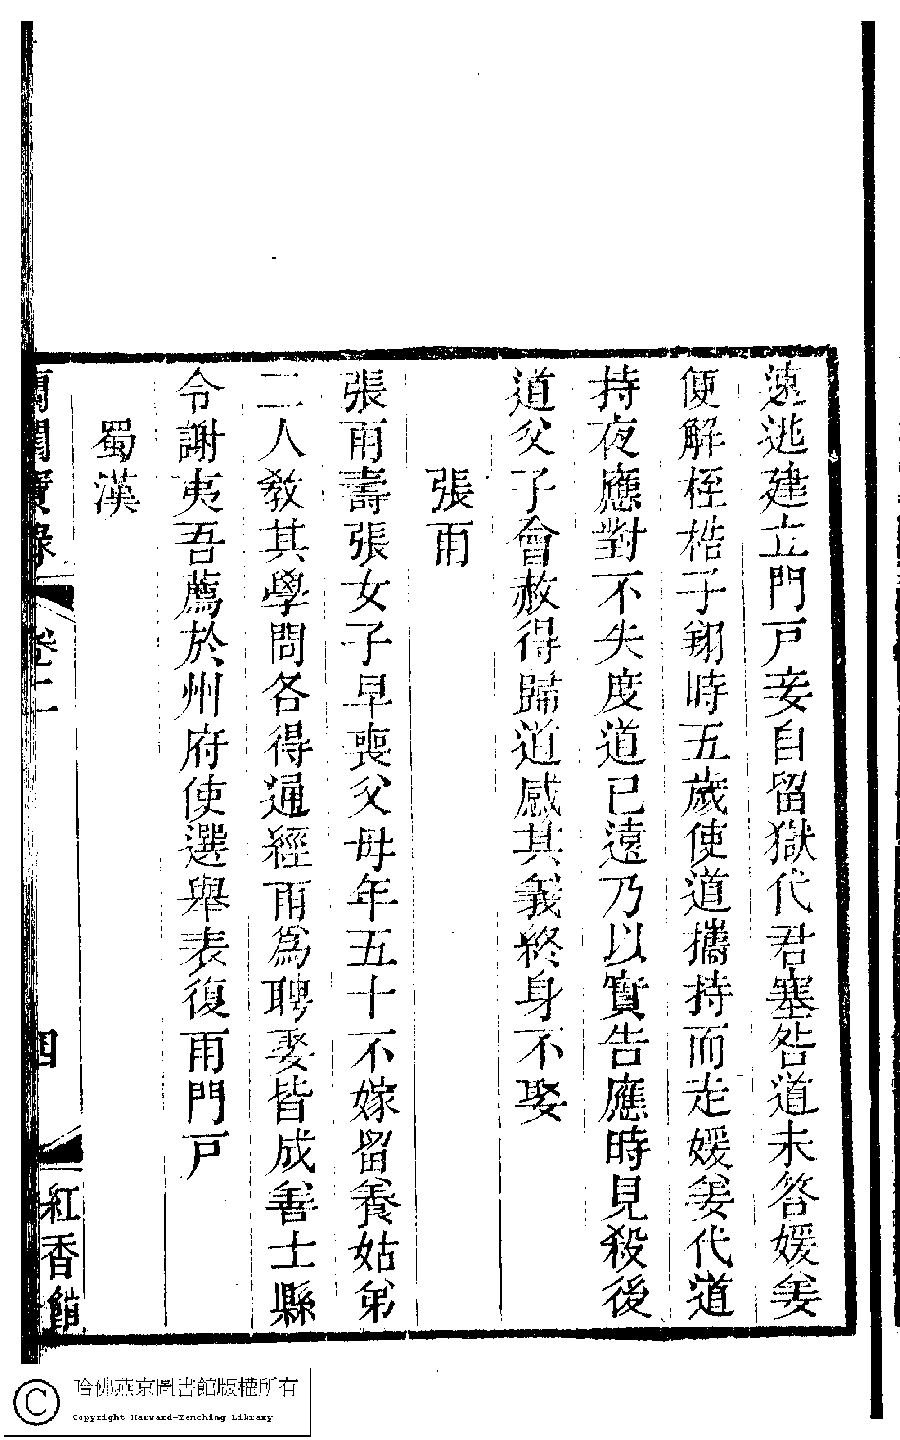 速逃建立門戸妾自留獄代君塞咎道未答媛姜
便解桎梏子翔時五歲使道攜持而走媛姜代道
持夜應對不失度道已遠乃以實告應時見殺後
道父子會赦得歸道感其義終身不娶
張雨
張雨壽張女子早喪父母年五十不嫁留養姑弟
二人敎其學問各得通經雨爲聘娶皆成善士縣
令謝夷吾薦於州府使選舉表復雨門戸
蜀漢
蘭閨寶錄 卷二 四 紅香館
哈佛燕京圖書館版權所有
Copyright Harvard-Yenching Library